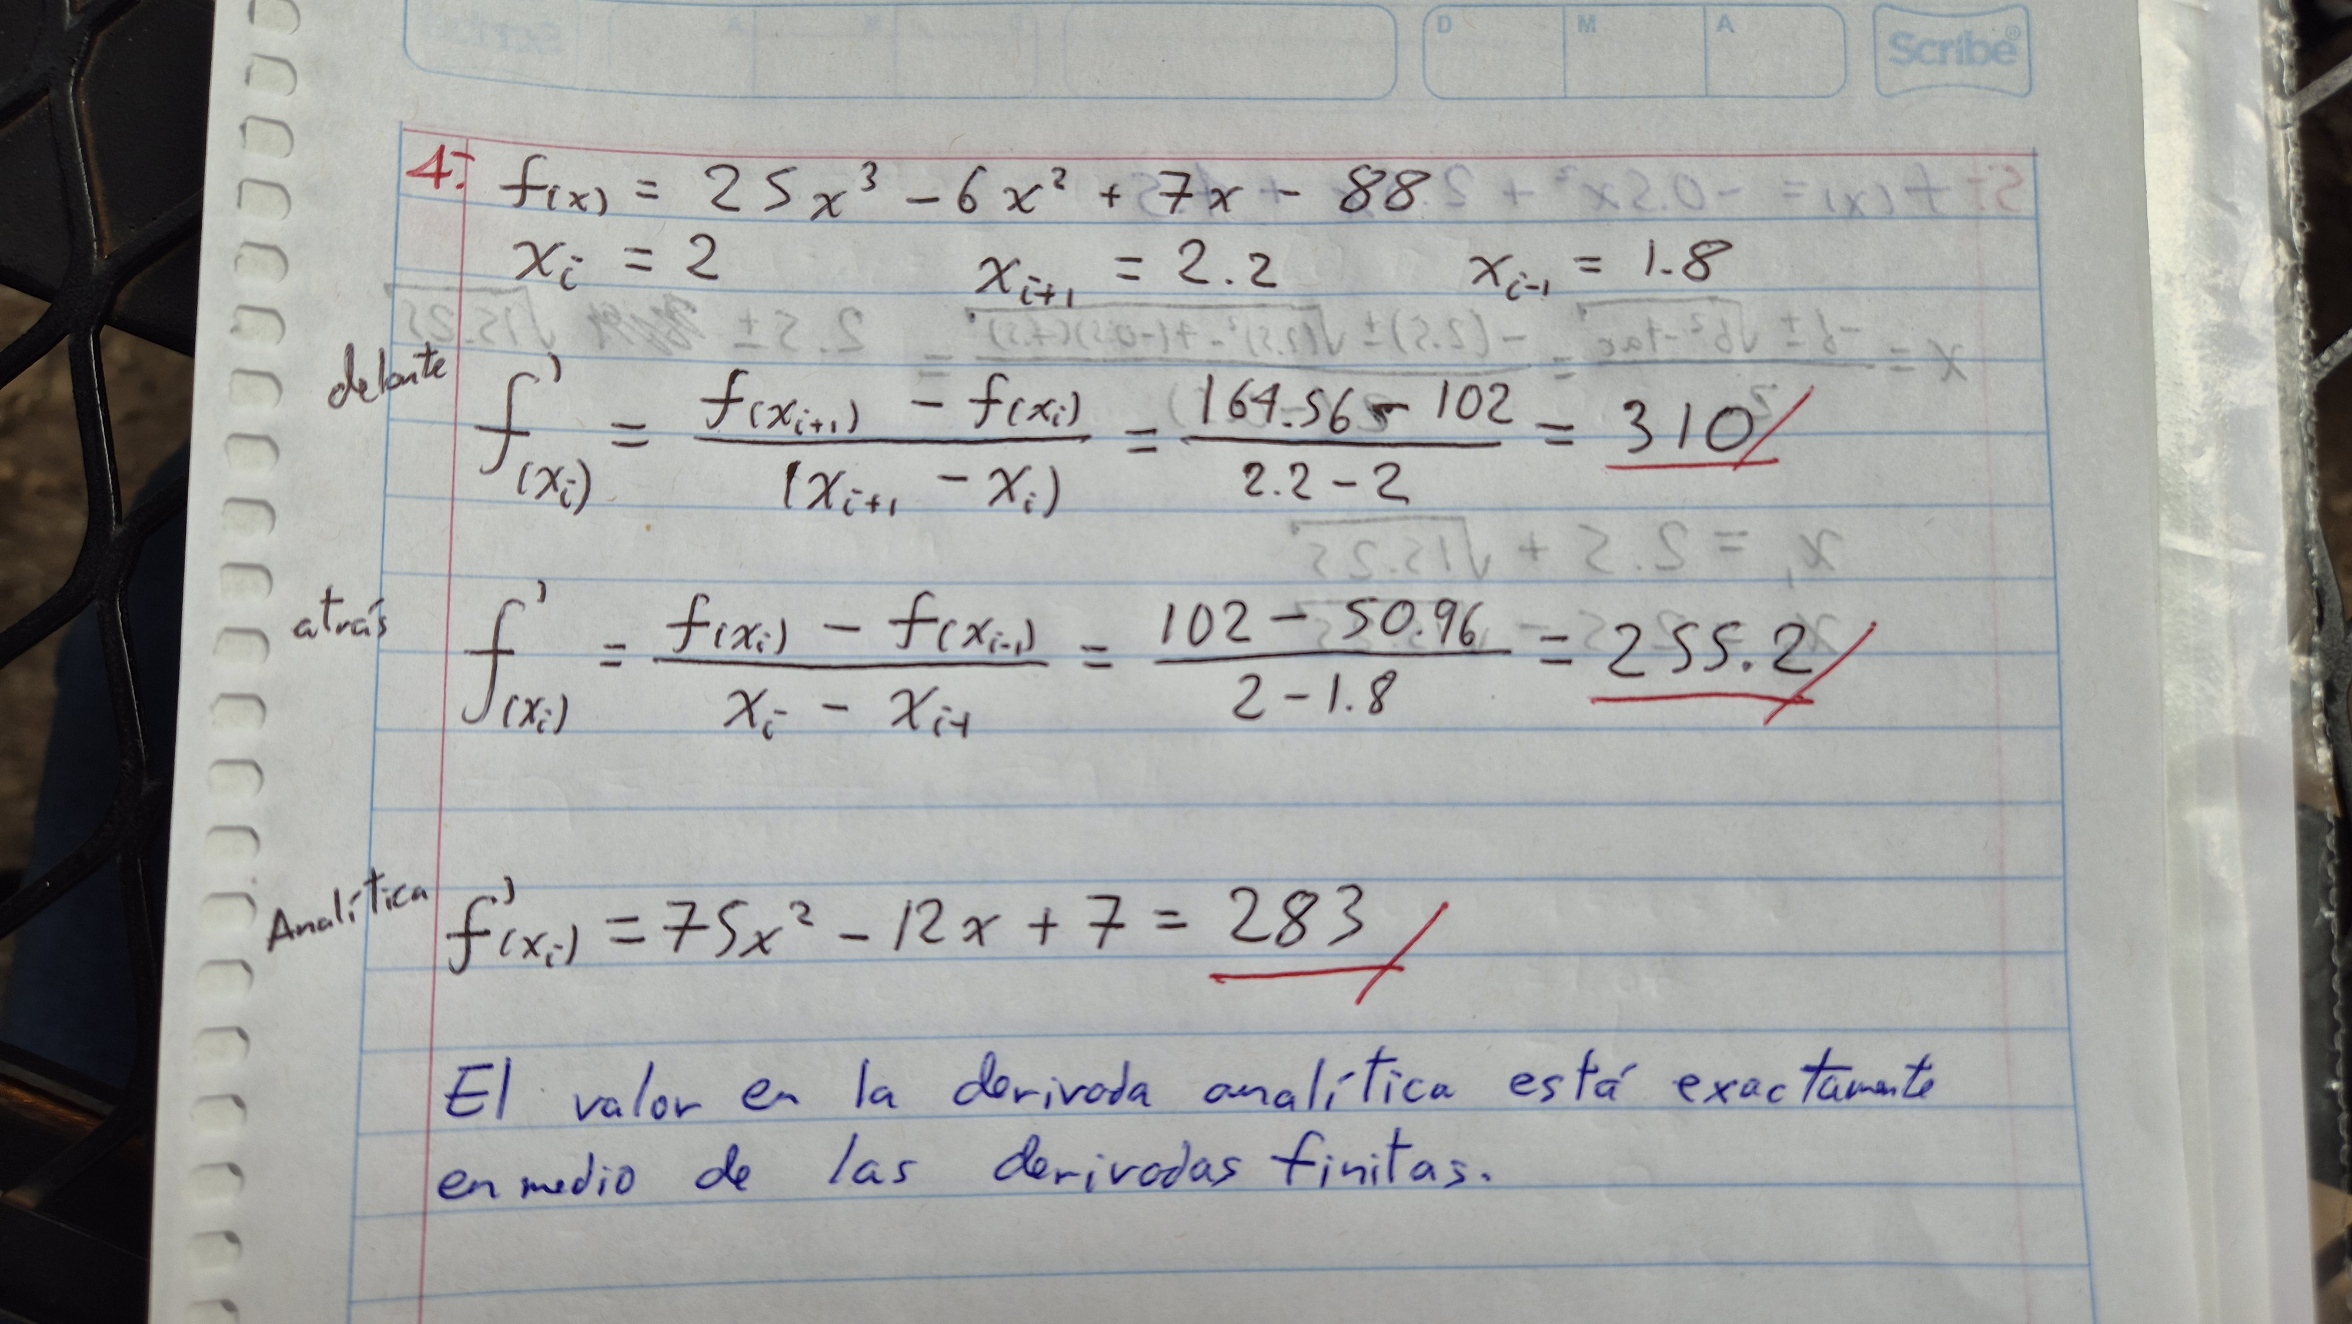 D M A Scribe®
4- f(x) = 25x³ - 6x² + 7x - 88
xᵢ = 2 xᵢ₊₁ = 2.2 xᵢ₋₁ = 1.8
delante f'(xᵢ) = f(xᵢ₊₁) - f(xᵢ) / (xᵢ₊₁ - xᵢ) = 164.56 - 102 / 2.2 - 2 = 310
atrás f'(xᵢ) = f(xᵢ) - f(xᵢ₋₁) / xᵢ - xᵢ₋₁ = 102 - 50.96 / 2 - 1.8 = 255.2
Analítica f'(xᵢ) = 75x² - 12x + 7 = 283
El valor en la derivada analítica está exactamente
en medio de las derivadas finitas.